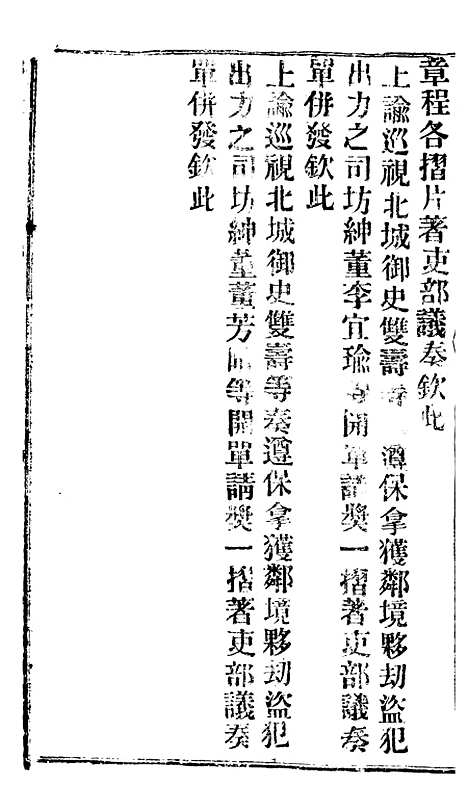 章程各摺片著吏部議奏欽此
上諭巡視北城御史雙壽等 遵保拿獲鄰境夥劫盜犯
出力之司坊紳董李宜瑜等開單請獎一摺著吏部議奏
單併發欽此
上諭巡視北城御史雙壽等奏遵保拿獲鄰境夥劫盜犯
出力之司坊紳董董芳 等開單請獎一摺著吏部議奏
單併發欽此